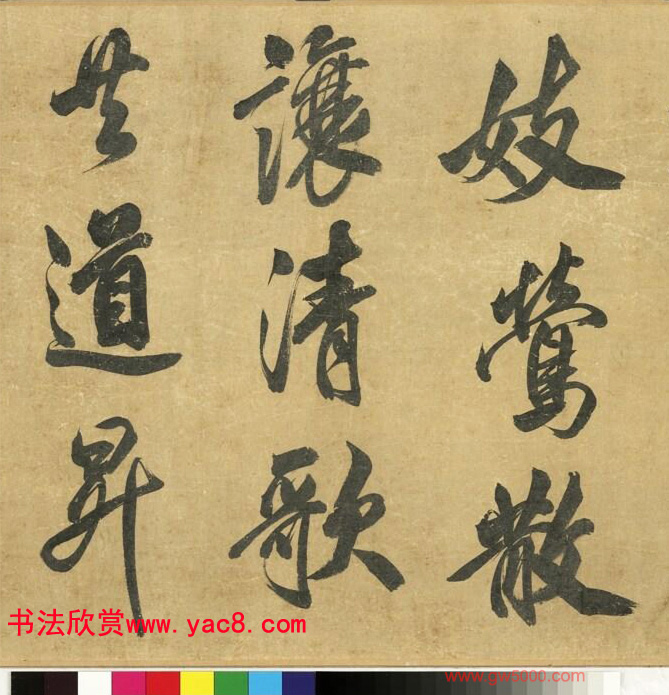 妓鶯散
讓清歌
共道昇
书法欣赏www.yac8.com
www.gw5000.com